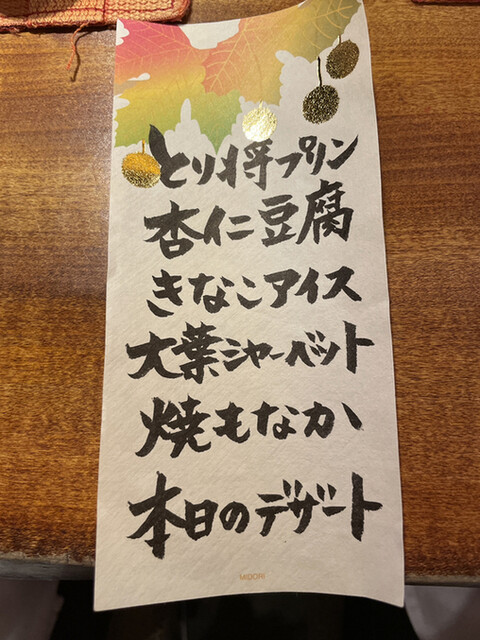 とり将プリン
杏仁豆腐
きなこアイス
大葉シャーベット
焼もなか
本日のデザート
MIDORI